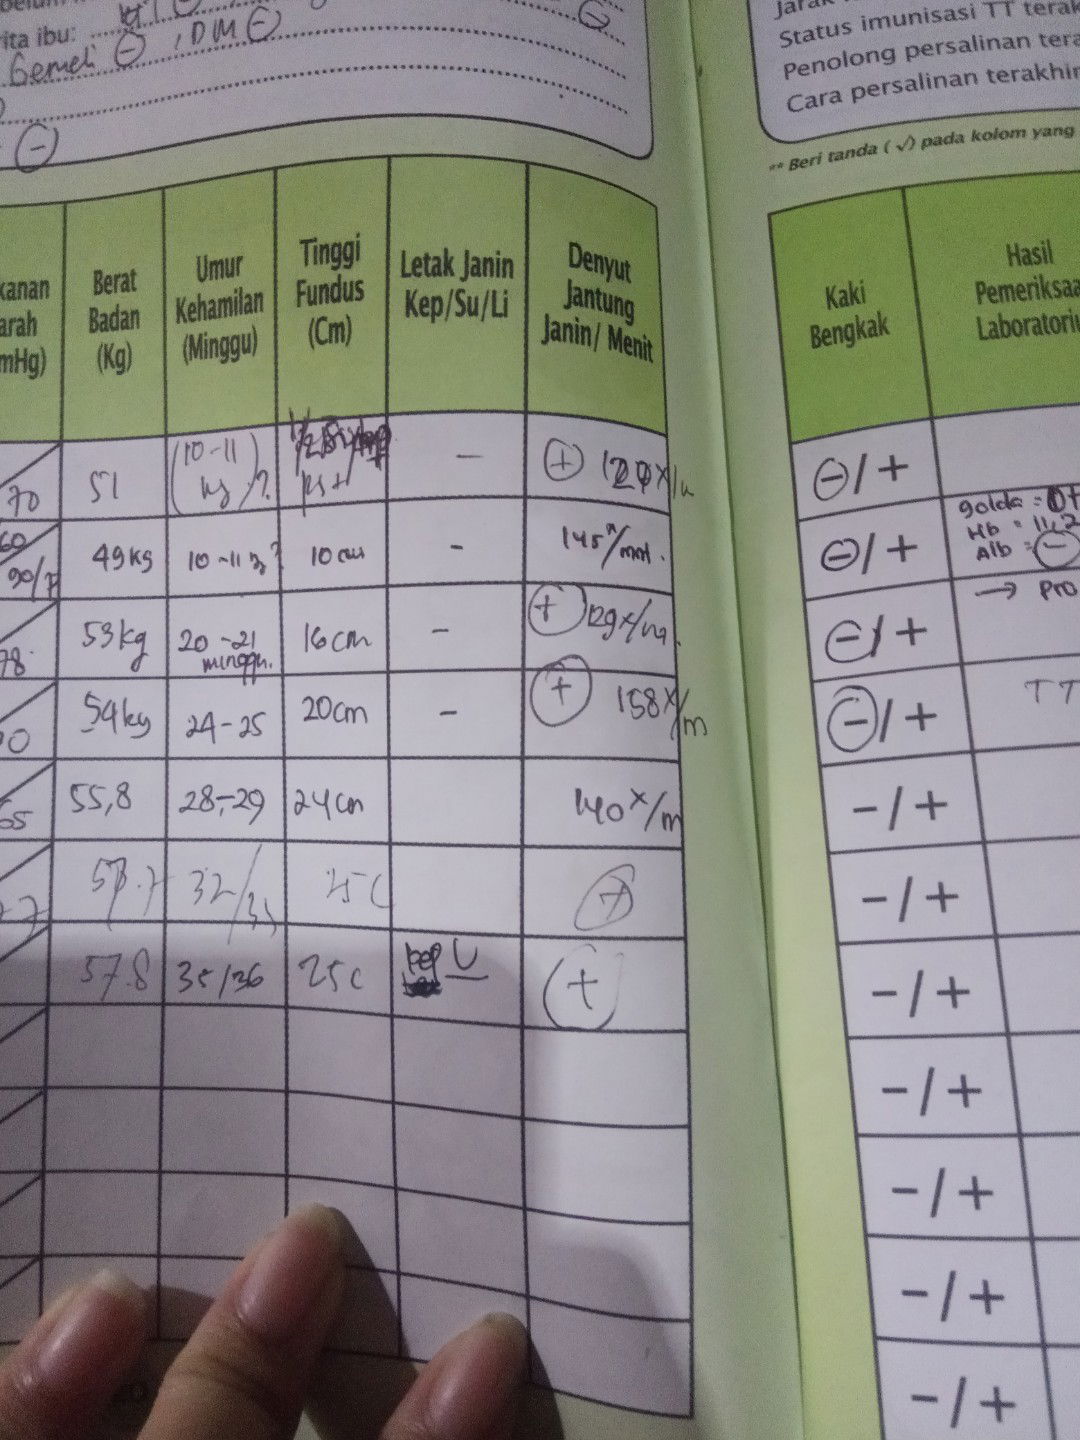 rita ibu:
Gemeli ⊖, DM ⊖
⊖
Status imunisasi TT terak
Penolong persalinan tera
Cara persalinan terakhir
** Beri tanda (√) pada kolom yang
kanan
arah
mHg)
Berat
Badan
(Kg)
Umur
Kehamilan
(Minggu)
Tinggi
Fundus
(Cm)
Letak Janin
Kep/Su/Li
Denyut
Jantung
Janin/ Menit
Kaki
Bengkak
Hasil
Pemeriksaa
Laboratoriu
70 51 (10-11 - ⊕
⊖/+
60
90/ 49kg 10-11 10 cm - 145x/mnt.
⊖/+
golda =
Hb =
Alb = ⊖
78 53kg 20-21 minggu. 16cm - ⊕ 129x/
⊖/+
→ Pro
54kg 24-25 20cm - ⊕ 158x/m
⊖/+
TT
65 55,8 28-29 24cm 140x/m
-/+
32/33 25c ⊕
-/+
57.8 35/36 25c kep U (+)
-/+
-/+
-/+
-/+
-/+